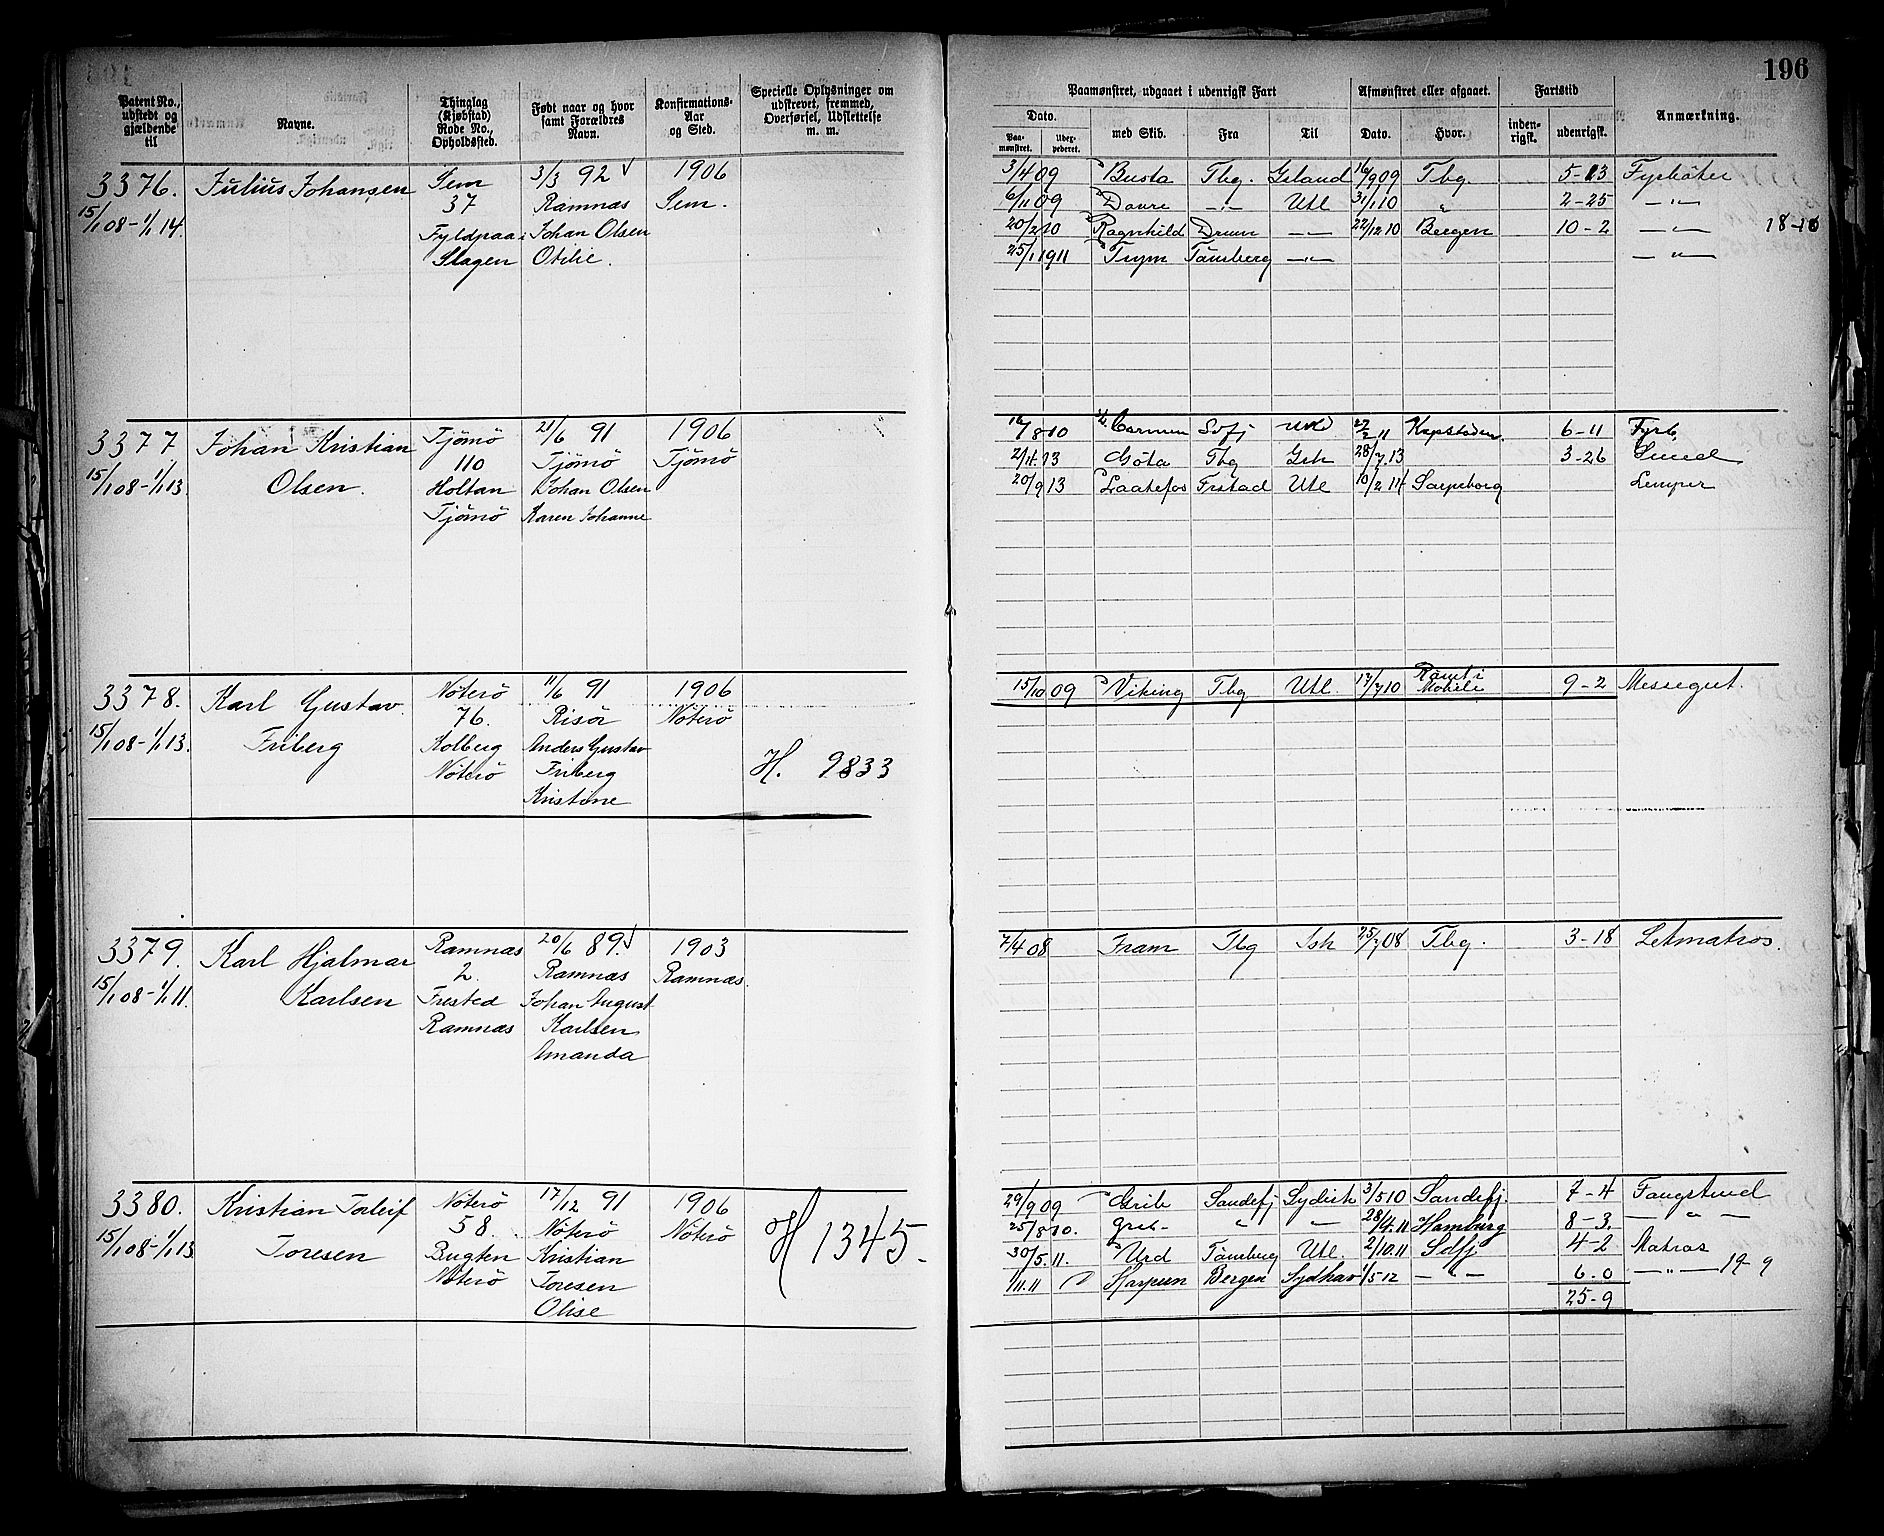 196
Patent No., udstedt og gjældende til
Navne.
Thinglag (Kjøbstad) Rode No., Opholdssted.
Født naar og hvor samt Forældres Navn.
Konfirmations-Aar og Sted.
Specielle Oplysninger om udskrevet, fremmed, Overførsel, Udslettelse m. m.
Paamønstret, udgaaet i udenrigsk Fart
Afmønstret eller afgaaet.
Fartstid
Anmærkning.
Dato.
Paa-mønstret.
Uder-pederet.
med Skib.
Fra
Til
Dato.
Hvor.
inden-rigsk.
udenrigsk.
3376. Julius Johansen Sem 3/3 92 1906
15/1 08-1/1 14. 37 Ramnæs Sem.
Fyldpaa Johan Olsen
Slagen Otilie.
3/4 09 Busta Tbg. Island 16/9 09 Tbg. 5-13 Fyrbøter
6/11 09 Dovre -"- Utl 31/1 10 " 2-25 -"-
20/2 10 Ragnhild Drmn -"- 22/12 10 Bergen 10-2 -"- 18-10
25/1 1911 Trym Tønsberg -"- -"-
3377 Johan Kristian Tjømø 21/6 91 1906
15/1 08-1/1 13. Olsen. 110 Tjømø Tjømø
Holtan Johan Olsen
Tjømø Karen Johanne
16/8 10 Carmen Svfj Utl 27/2 11 Kapstaden. 6-11 Fyrb.
2/4 13 Göta Tbg Ish 28/7 13 3-26 Smed
20/9 13 Laatefos Frstad Utl 10/2 14 Sarpsborg Lemper
3378. Karl Gustav Nøterø 11/6 91 1906
15/1 08-1/1 13. Friberg 76. Risør Nøterø
Kolberg Anders Gustav
Nøterø Friberg
Kristine
H. 9833
15/10 09 Viking Tbg Utl. 17/7 10 Rømt i Mobile 9-2 Messegut.
3379. Karl Hjalmar Ramnæs 20/6 89. 1903
15/1 08-1/1 11. Karlsen 2 Ramnæs Ramnæs.
Frested Johan August
Ramnæs Karlsen
Amanda
7/4 08 Fram Tbg Ish 25/7 08 Tbg. 3-18 Letmatros.
3380. Kristian Torleif Nøterø 17/12 91 1906
15/1 08-1/1 13 Toresen 58. Nøterø Nøterø
Bugten Kristian
Nøterø Toresen
Olise
H 1345.
29/9 09 Grib Sandefj Sydish 3/5 10 Sandefj. 7-4 Fangstmd
25/8 10. Grib- " " 28/4 11 Hamburg 8-3. -"-
30/5. 11. Urd Tønsberg Utl. 2/10. 11 Sdfj 4-2 Matros
1/11. 11 Harpun Bergen Sydhav 1/5 12 -"- 6-0 -"- 19-9
25-9